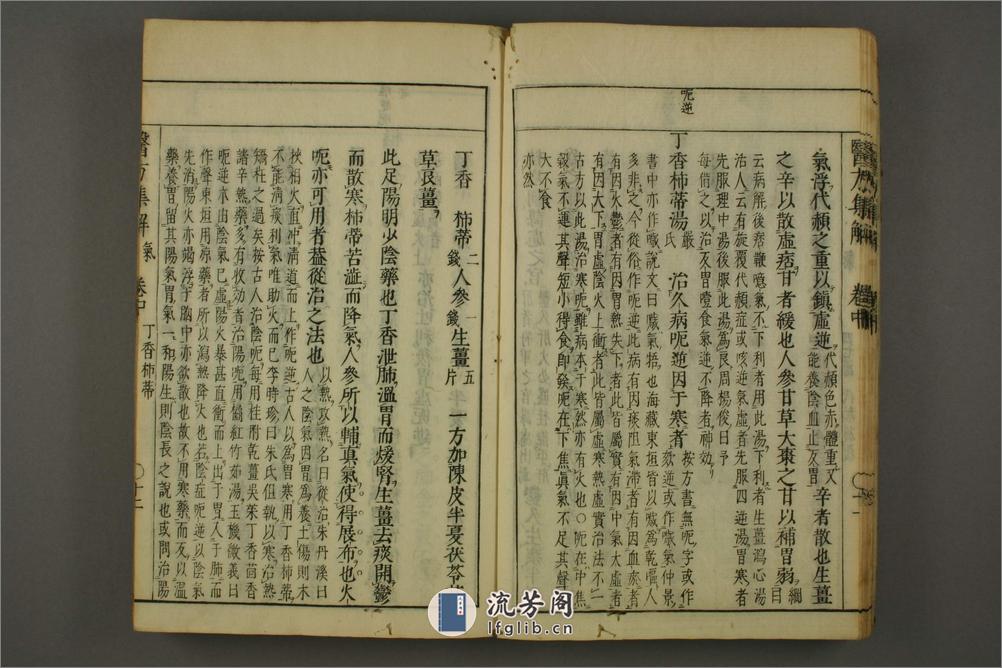 呃逆
醫方集解
卷中
氣浮代赭之重以鎮虛逆
代赭色赤體重又
能養陰血止反胃
辛者散也生薑
之辛以散虛痞甘者緩也人參甘草大棗之甘以補胃弱
綱目
云病解後痞鞕噫氣不下利者用此湯下利者生薑瀉心湯
活人云有旋覆代赭症或咳逆氣虛者先服四逆湯胃寒者
先服理中湯次服此湯為良周揚俊曰予
每借之以治反胃噎食氣逆不降者神効
丁香柿蒂湯
嚴氏
治久病呃逆因于寒者
按方書無呃字或作
欬逆或作噦氣仲景
書中亦作噦說文曰噦氣捂也海藏東垣皆以噦為乾嘔人
多非之今從俗作呃逆此病有因痰阻氣滯者有因血瘀者
有因火鬱者有因胃熱失下者此皆屬實有因中氣大虛者
有因大下胃虛陰火上衝者此皆屬虛寒熱虛實治法不一
古方以此湯治寒呃雖病本于寒然亦有火也○呃在中焦
穀氣不運其聲短小得食即發呃在下焦真氣不足其聲長
大不食
亦然
丁香
柿蒂
二錢
人參
一錢
生薑
五片
一方加陳皮半夏茯苓甘
草良薑
此足陽明少陰藥也丁香泄肺溫胃而煖腎生薑去痰開鬱
而散寒柿蒂苦澁而降氣人參所以輔真氣使得展布也火
呃亦可用者葢從治之法也
以熱攻熱名曰從治朱丹溪曰
人之陰氣因胃為養土傷則木
挾相火直冲清道而上作呃逆古人以為胃寒用丁香柿蒂
不能清痰利氣唯助火而已李時珍曰朱氏但執以寒治熱
矯枉之過矣按古人治陰呃每用桂附乾薑吳茱丁香茴香
諸辛熱藥多有收功者治陽呃用橘紅竹茹湯玉機微義曰
呃逆亦由陰氣已虛陽火暴甚直衝而上出于胃入于肺而
作聲東垣用涼藥者所以瀉熱降火也若陰症呃逆以陰氣
先消陽火亦竭浮于胸中亦欲散也故不用寒藥而反以溫
藥養胃留其陽氣胃氣一和陽生則陰長之說也或問治陽
醫方集解
氣
卷中
丁香柿蒂
十二
流芳阁
lfglib.cn